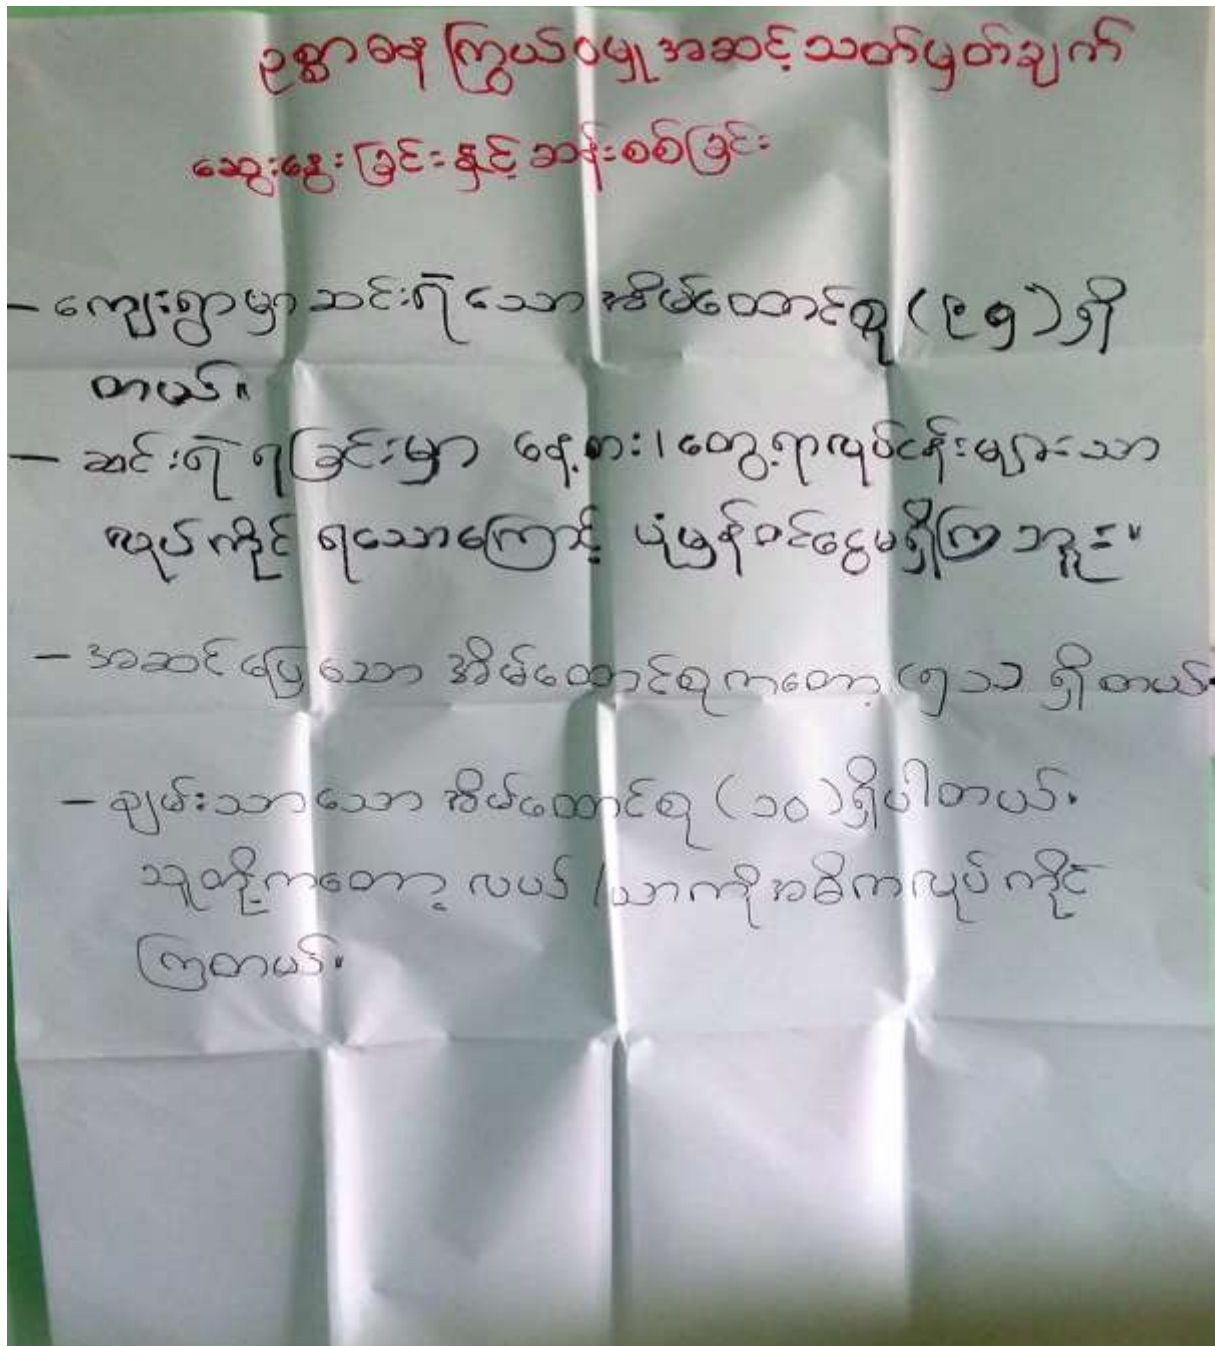 ဥစ္စာဓန ကြွယ်ဝမှု အဆင့်သတ်မှတ်ချက်
ဆွေးနွေးခြင်းနှင့် ဆန်းစစ်ခြင်း
- ကျေးရွာမှာ ဆင်းရဲသော အိမ်ထောင်စု (၉၅) ရှိ
တယ်။
- ဆင်းရဲရခြင်းမှာ နေ့စား၊ တွေ့ရာလုပ်ငန်းများသာ
လုပ်ကိုင် ရသောကြောင့် ပုံမှန်ဝင်ငွေမရှိကြဘူး။
- အဆင်ပြေသော အိမ်ထောင်စုကတော့ ရှိတယ်။
- ချမ်းသာသော အိမ်ထောင်စု (၁၀) ရှိပါတယ်။
သူတို့ကတော့ လယ်/ယာကို အဓိကလုပ်ကိုင်
ကြတယ်။